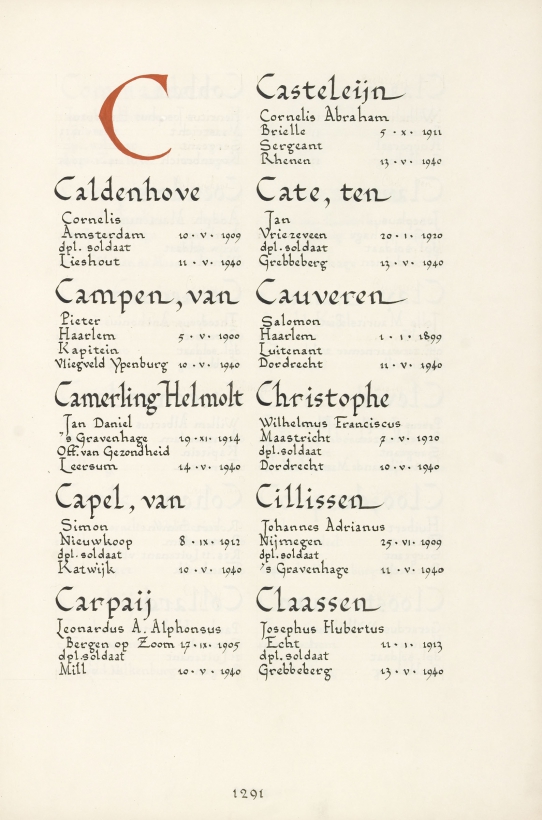 C
Caldenhove
Cornelis
Amsterdam 10 · v · 1909
dpl. soldaat
Lieshout 11 · v · 1940
Campen, van
Pieter
Haarlem 5 · v · 1900
Kapitein
Vliegveld Ypenburg 10 · v · 1940
Camerling Helmolt
Jan Daniel
's Gravenhage 19 · xi · 1914
Off. van Gezondheid
Leersum 14 · v · 1940
Capel, van
Simon
Nieuwkoop 8 · ix · 1912
dpl. soldaat
Katwijk 10 · v · 1940
Carpaij
Leonardus A. Alphonsus
Bergen op Zoom 17 · ix · 1905
dpl. soldaat
Mill 10 · v · 1940
Casteleijn
Cornelis Abraham
Brielle 5 · x · 1911
Sergeant
Rhenen 13 · v · 1940
Cate, ten
Jan
Vriezeveen 20 · 1 · 1920
dpl. soldaat
Grebbeberg 13 · v · 1940
Cauveren
Salomon
Haarlem 1 · 1 · 1899
Luitenant
Dordrecht 11 · v · 1940
Christophe
Wilhelmus Franciscus
Maastricht 7 · v · 1920
dpl. soldaat
Dordrecht 10 · v · 1940
Cillissen
Johannes Adrianus
Nijmegen 25 · vi · 1909
dpl. soldaat
's Gravenhage 11 · v · 1940
Claassen
Josephus Hubertus
Echt 11 · 1 · 1913
dpl. soldaat
Grebbeberg 13 · v · 1940
1291